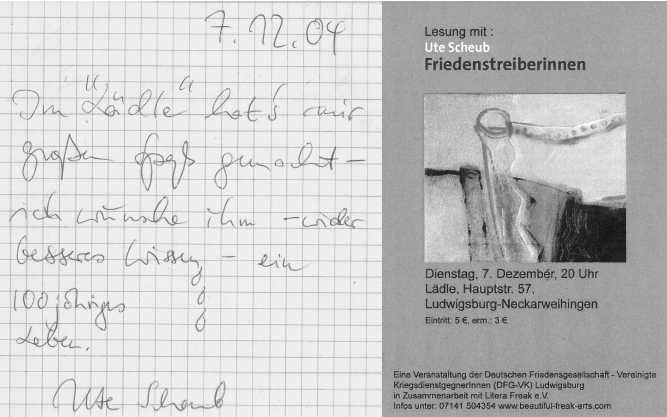 7.12.04
Im "Lädle" hat's mir
großen Spaß gemacht –
ich wünsche ihm – wider
besseres Wissen – ein
100jähriges
Leben.
Ute Scheub
Lesung mit :
Ute Scheub
Friedenstreiberinnen
Dienstag, 7. Dezember, 20 Uhr
Lädle, Hauptstr. 57,
Ludwigsburg-Neckarweihingen
Eintritt: 5 €, erm.: 3 €
Eine Veranstaltung der Deutschen Friedensgesellschaft - Vereinigte
KriegsdienstgegnerInnen (DFG-VK) Ludwigsburg
in Zusammenarbeit mit Litera Freak e.V.
Infos unter: 07141 504354 www.beautiful-freak-arts.com